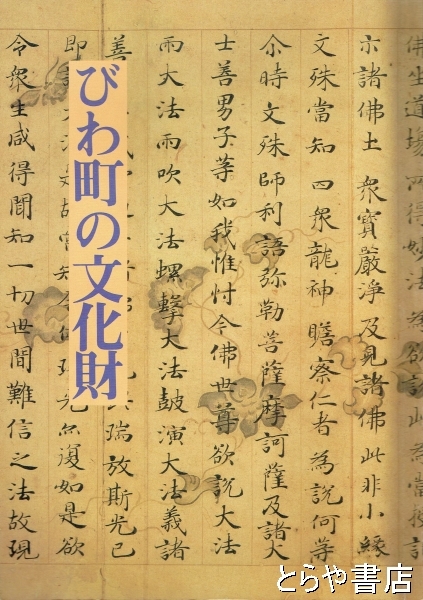 佛坐道場 所得妙法 為欲說此 為當授記
示諸佛土 眾寶嚴淨 及見諸佛 此非小緣
文殊當知 四眾龍神 瞻察仁者 為說何等
尒時文殊師利語弥勒菩薩摩訶薩及諸大
士善男子等如我惟忖今佛世尊欲說大法
雨大法雨吹大法螺擊大法鼓演大法義諸
善
瑞放斯光已
びわ町の文化財
即
光亦復如是欲
令眾生咸得聞知一切世間難信之法故現
とらや書店